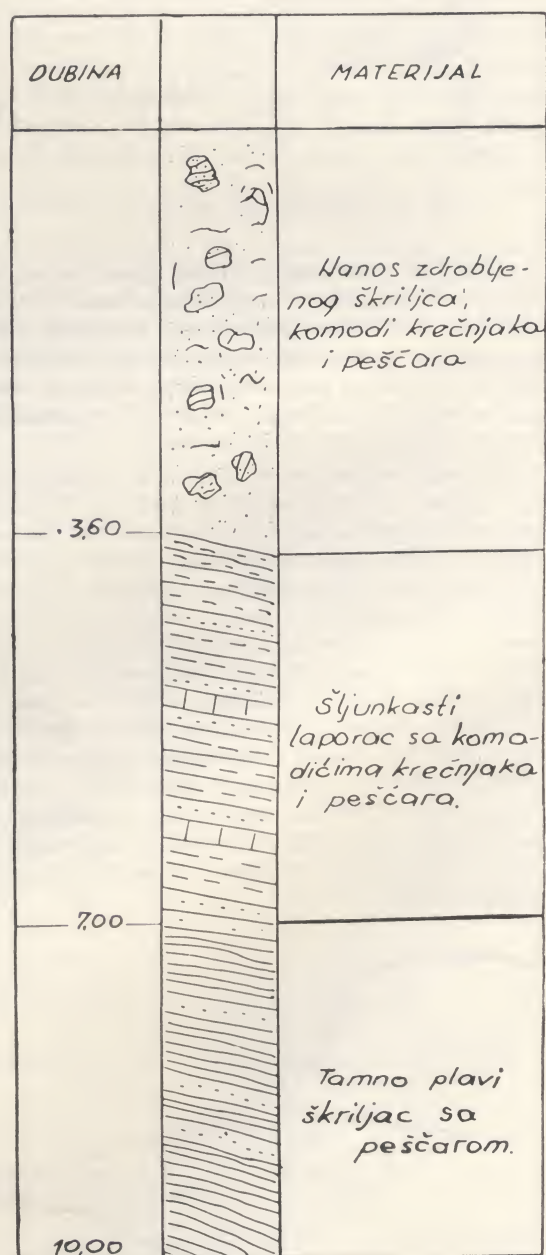 DUBINA
MATERIJAL
Nanos zdroblje-
nog škriljca,
komodi krečnjaka
i peščara
3,60
Šljunkasti
laporac sa koma-
dićima krečnjaka
i peščara.
7,00
Tamno plavi
škriljac sa
peščarom.
10,00